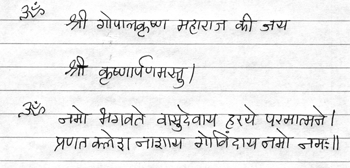 ॐ श्री गोपालकृष्ण महाराज की जय
श्री कृष्णार्पणमस्तु।
ॐ नमो भगवते वासुदेवाय हरये परमात्मने।
प्रणत क्लेश नाशाय गोविंदाय नमो नमः॥